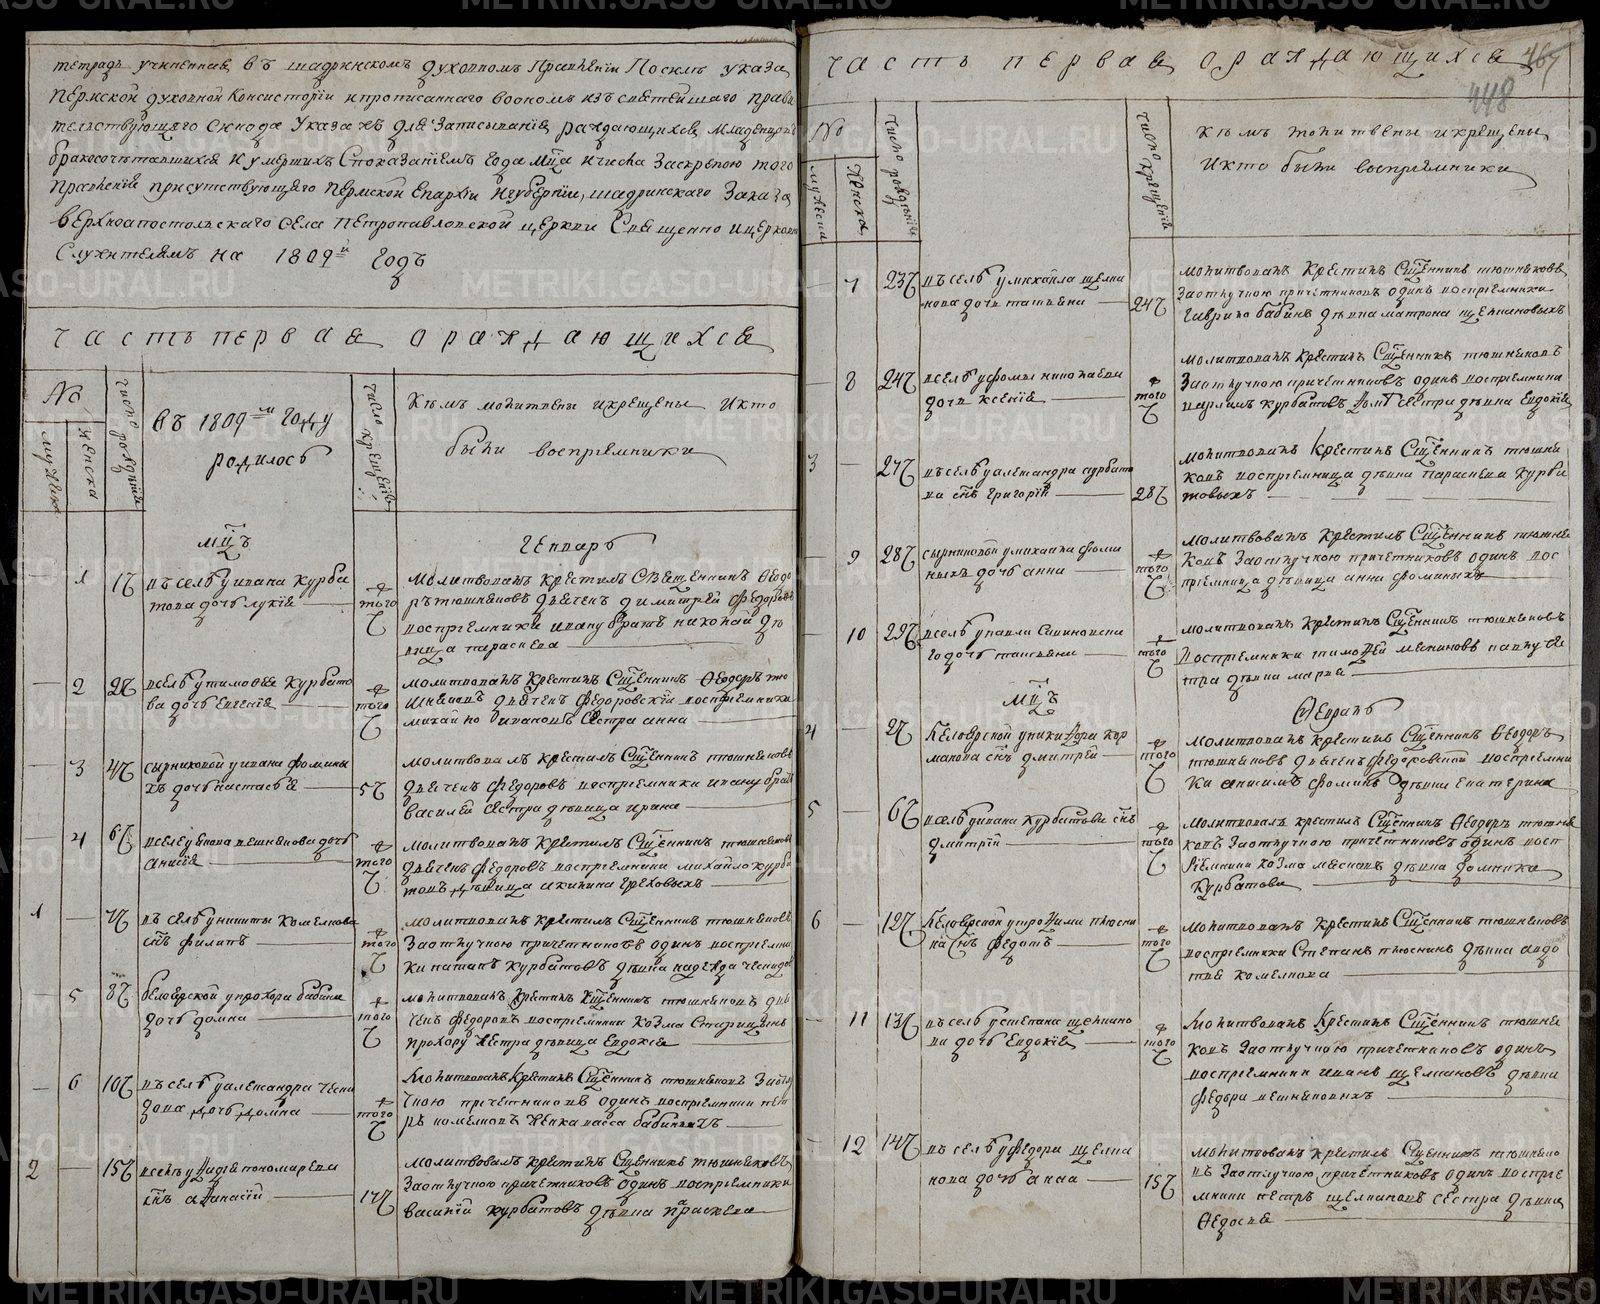 тетрадь учиненная въ шадринскомъ духовномъ Правленїи По силѣ указа
Пермской духовной Консисторїи и прописаннаго во ономъ изъ святейшаго прави
тельствующаго синода Указа къ для Записыванїя раждающихся младенцовъ
бракосочетавшихся и умершихъ С показанїемъ года мца и числа За скрепою того
Правленїя присутствующаго Пермской Епархїи и губернїи, шадринскаго Заказа
верхноапостольскаго села Петропавловской церкви Священно и церковно
Служителямъ на 1809й Годъ
часть первая о раждающихся
№
мужеска
женска
число рожденїя
въ 1809мъ году
родилось
число крещенїя
Кѣмъ молитвены и крещены И кто
были воспрїемники
мцъ
Генварь
1
1ч
въ селѣ у ивана курба
това дочь лукїя
того
ч
молитвовалъ крестилъ Священникъ Ѳеодо
ръ тюшняковъ дьячекъ димитрей федоровъ
воспрїемники ивану братъ николай дѣ
вица параскева
2
2ч
в селѣ у тимоѳея курбато
ва дочь Евгенїя
того
ч
молитвовалъ крестилъ Сщенникъ Ѳеодоръ тю
шняковъ дьячекъ федоровскїй воспрїемники
михайло ивановъ сестра анна
3
4ч
сырниковой у ивана фомины
хъ дочь настасья
5ч
молитвовалъ крестилъ Сщенникъ тюшняковъ
дьячекъ федоровъ воспрїемники ивану братъ
василей сестра дѣвица ирина
4
6ч
в селе у дочь
анисїя
того
ч
молитвовалъ крестилъ Сщенникъ тюшняковъ
дьячекъ федоровъ воспрїемники михайло курба
товъ дѣвица акилина Греховыхъ
1
7ч
въ селѣ у никиты комелкова
снъ филипъ
того
ч
молитвовалъ крестилъ Сщенникъ тюшняковъ
За отлучкою причетниковъ одинъ воспрїемни
ки курбатовъ дѣвица надежда
5
8ч
белоярской у прохора бабина
дочь домна
того
ч
молитвовалъ крестилъ Сщенникъ тюшняковъ дья
чекъ федоровъ воспрїемники козма
прохору сестра дѣвица Евдокїя
6
10ч
въ селѣ у александра
дочь домна
того
ч
молитвовалъ крестилъ Сщенникъ тюшняковъ За отлу
чкою причетниковъ одинъ воспрїемники пет
ръ комелковъ женка васса бабиныхъ
2
15ч
в селѣ у пономарева
снъ аѳанасїй
17ч
молитвовалъ крестилъ Сщенникъ тюшняковъ
За отлучкою причетниковъ одинъ воспрїемники
василїй курбатовъ дѣвица праскева
часть первая о раждающихся
467
448
№
мужеска
женска
число рожденїя
число крещенїя
Кѣмъ молитвены и крещены
И кто были воспрїемники
7
23ч
въ селѣ у михаила щелка
нова дочь татьяна
24ч
молитвовалъ крестилъ Сщенникъ тюшняковъ
За отлучкою причетниковъ одинъ воспрїемники
Гаврило бабинъ дѣвица матрона щелкановыхъ
8
24ч
в селѣ у фомы николаева
дочь ксенїя
того
ч
молитвовалъ крестилъ Сщенникъ тюшняковъ
За отлучкою причетниковъ одинъ воспрїемники
курбатовъ сестра дѣвица Евдокїя
3
27ч
въ селѣ у александра курбато
ва снъ григорїй
28ч
молитвовалъ крестилъ Сщенникъ тюшня
ковъ воспрїемница дѣвица параскева курба
товыхъ
9
28ч
сырниковой у михаила фоми
ныхъ дочь анна
того
ч
молитвовалъ крестилъ Сщенникъ тюшня
ковъ За отлучкою причетниковъ одинъ вос
прїемница дѣвица анна фоминыхъ
10
29ч
в селѣ у павла
дочь татьяна
того
ч
молитвовалъ крестилъ Сщенникъ тюшняковъ
воспрїемники тимоѳей павлу се
стра дѣвица марья
мцъ
Февраль
4
2ч
Белоярской у никифора кор
макова снъ дмитрей
того
ч
молитвовалъ крестилъ Сщенникъ Ѳеодоръ
тюшняковъ дьячекъ федоровской воспрїемни
ки анисимъ фоминъ дѣвица Екатерина
5
6ч
в селѣ у ивана курбатова снъ
дмитрїй
того
ч
молитвовалъ крестилъ Сщенникъ Ѳеодоръ тюшня
ковъ За отлучкою причетниковъ одинъ восп
рїемники козма дѣвица домника
курбатова
6
12ч
Белоярской у трофима плюсни
на снъ федотъ
того
ч
молитвовалъ крестилъ Сщенникъ тюшняковъ
воспрїемники Степанъ плюснинъ дѣвица авдо
тья комелкова
11
13ч
въ селѣ у степана щелкано
ва дочь Евдокїя
того
ч
молитвовалъ крестилъ Сщенникъ тюшня
ковъ За отлучкою причетниковъ одинъ
воспрїемники иванъ щелкановъ дѣвица
федора
12
14ч
въ селѣ у федора щелка
нова дочь анна
15ч
молитвовалъ крестилъ Сщенникъ тюшняко
въ За отлучкою причетниковъ одинъ воспрїе
мники петръ щелкановъ сестра дѣвица
Ѳедосья
METRIKI.GASO-URAL.RU